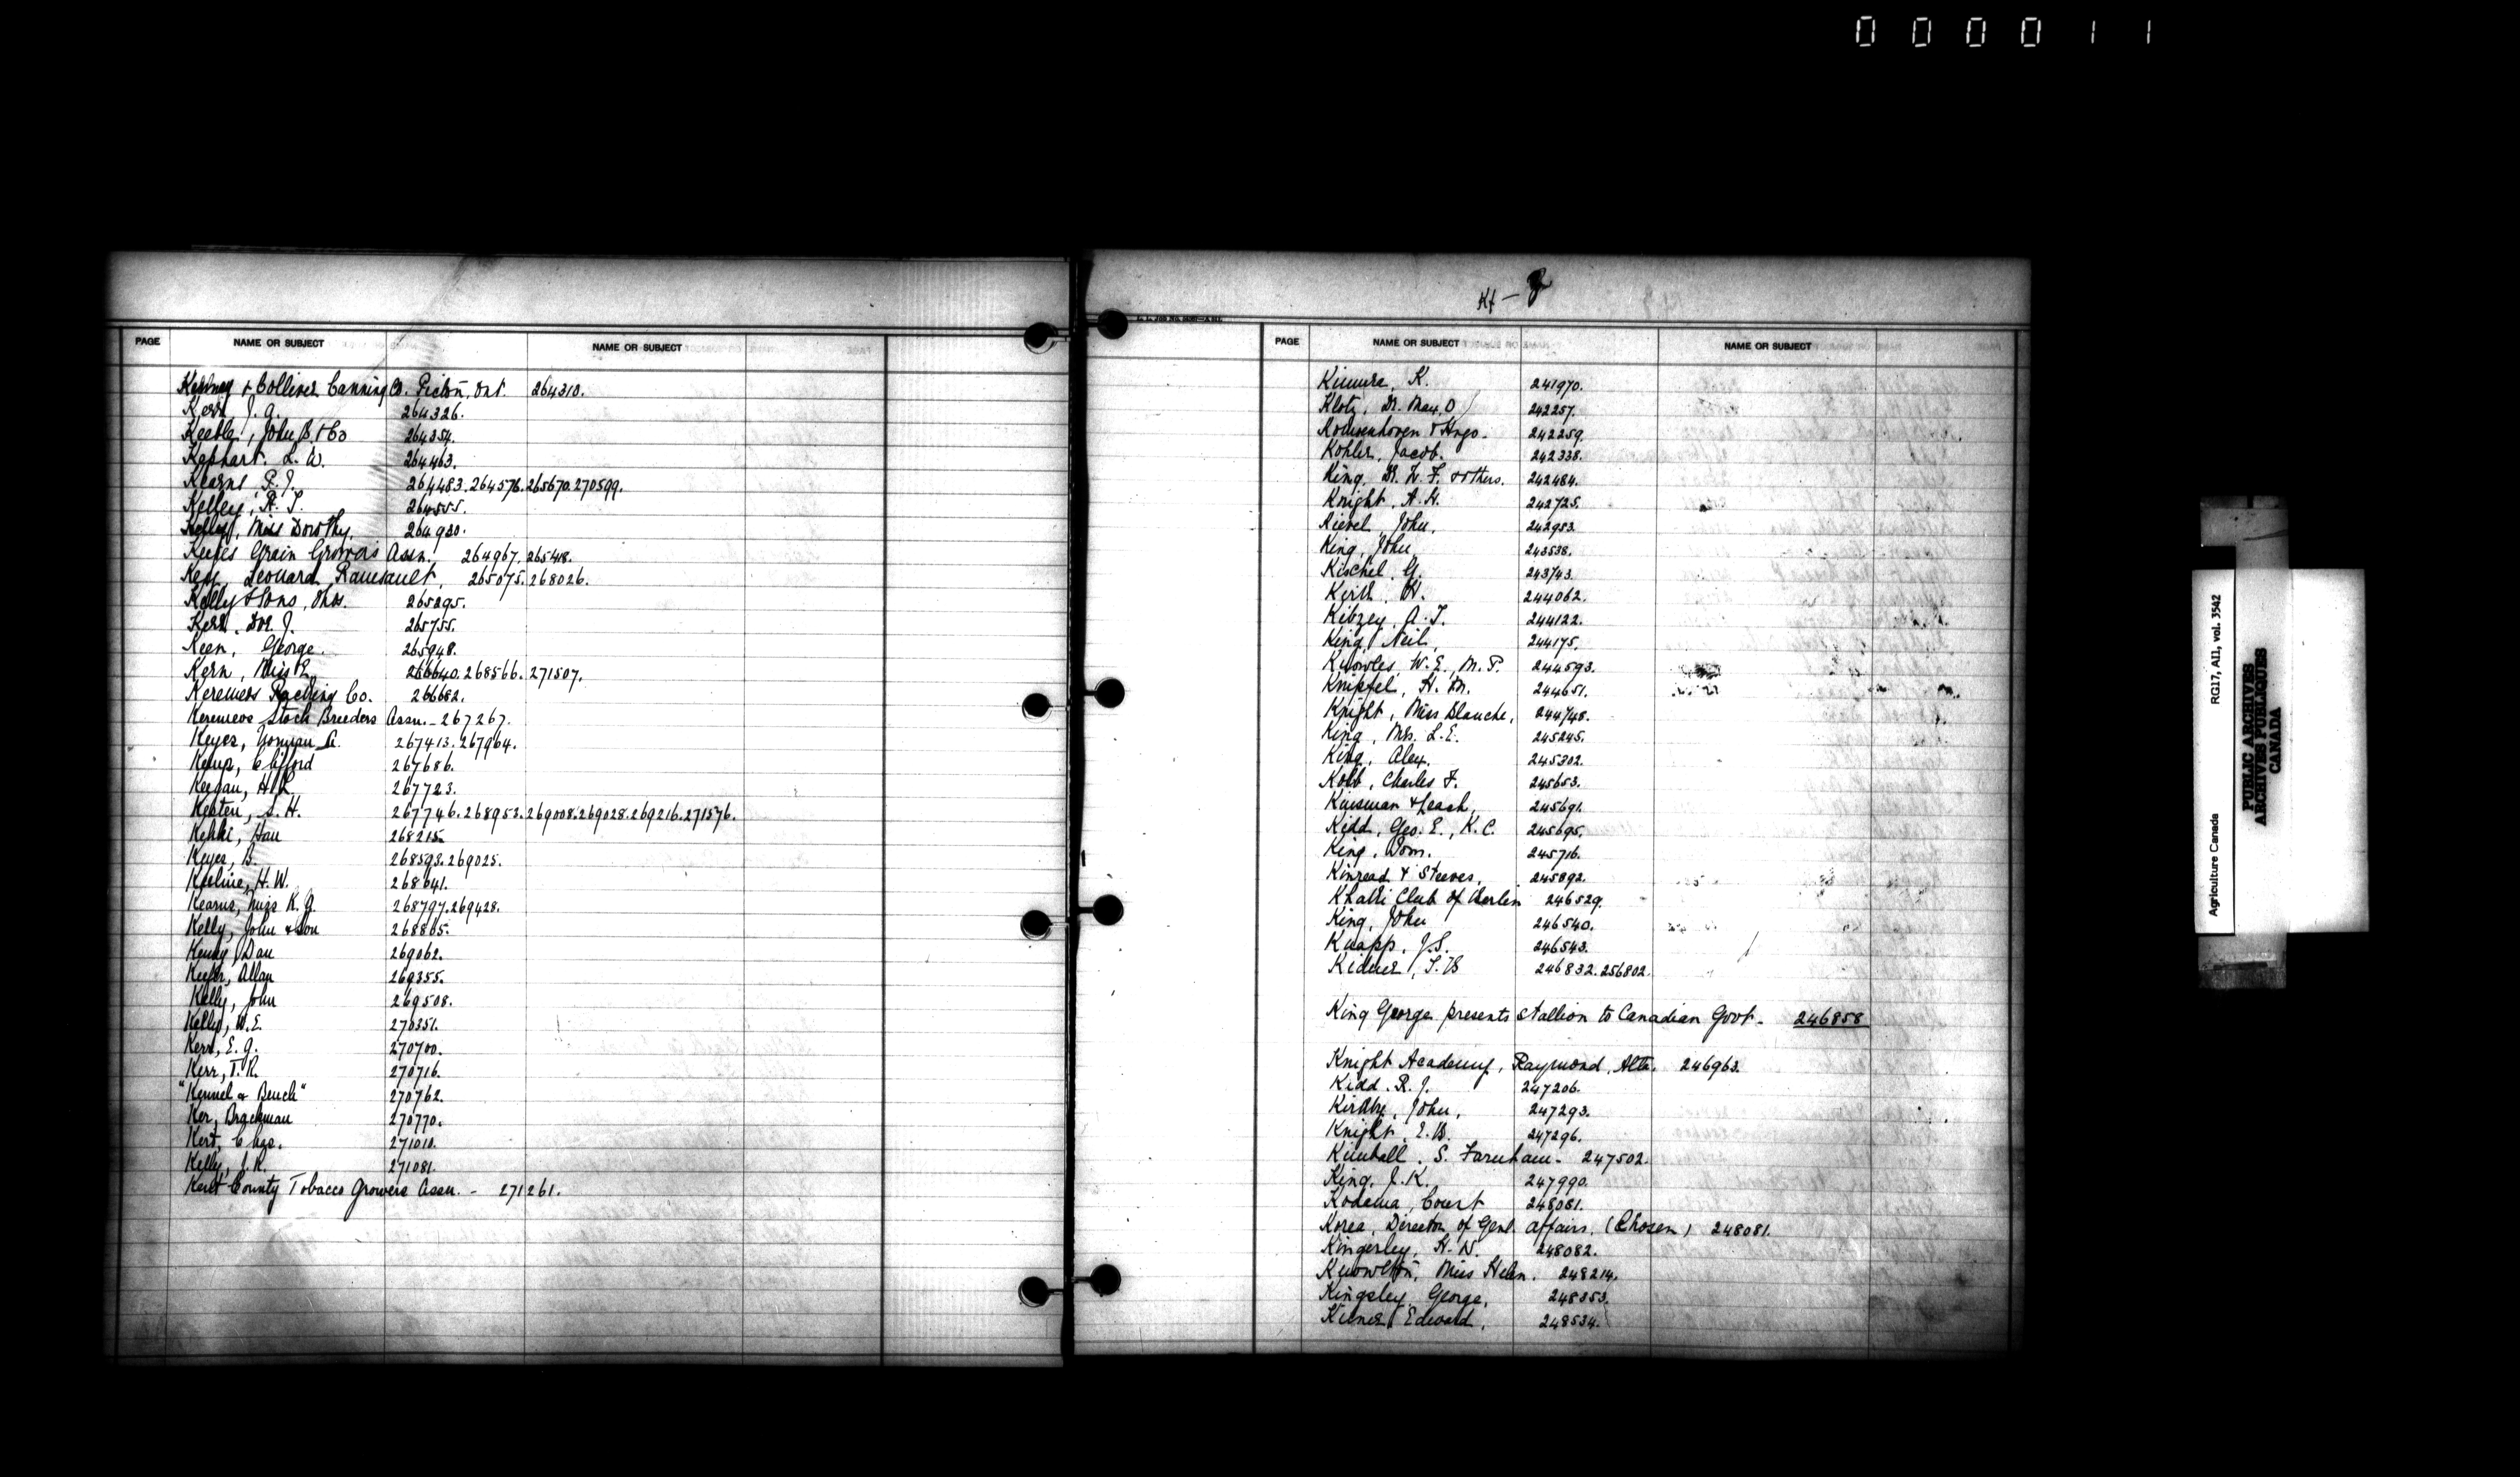 000011
PAGE NAME OR SUBJECT NAME OR SUBJECT
& Colliver Canning Co. Picton, Ont. 264310.
Kerr, J. G. 264326.
Keeble, John B. & Co 264354.
Kephart. L. W. 264463.
Kearns, P. J. 264483. 264576. 265670. 270599.
Kelley, A. T. 264555.
Kelly, Miss Dorothy. 264930.
Keeles Grain Growers Assn. 264967. 265418.
Key, Leonard 265075. 268026.
Kelly & Sons, Thos. 265295.
Kerr, J. 265755.
Keen, George. 265948.
Kern, Miss L. 266640. 268566. 271507.
Keremeos Packing Co. 266682.
Keremeos Stock Breeders Assn. - 267267.
Keyes, Norman A. 267413. 267964.
Kemp, Clifford 267686.
Keegan, H. R. 267723.
Keaten, S. H. 267746. 268953. 269008. 269028. 269216. 271576.
Kekki, Hau 268215.
Keyes, B. 268593. 269025.
Keeline, H. W. 268641.
Kearns, Miss K. G. 268797. 269428.
Kelly, John & Son 268865.
Kenny, Dan 269062.
Keefer, Allan 269355.
Kelly, John 269508.
Kelly, W. E. 270351.
Kerr, E. G. 270700.
Kerr, T. R. 270716.
"Kennel & Bench" 270762.
Ker, Brackman 270770.
Kerr, Chas. 271010.
Kelly, J. R. 271081.
Kent County Tobacco Growers Assn. - 271261.
PAGE NAME OR SUBJECT NAME OR SUBJECT
Kimura, K. 241970.
Klotz, Dr. Max, O 242257.
& Hugo. 242259.
Kohler, Jacob. 242338.
King, Dr. W. F. & others. 242484.
Knight, A. H. 242725.
Kievel, John, 242953.
King, John 243538.
Kischel, G. 243743.
Keith, W. 244062.
Kibzey, A. T. 244122.
King, Neil, 244175.
Knowles, W. E., M. P. 244593.
Knipfel, H. M. 244651.
Knight, Miss Blanche, 244748.
King, Mrs. L. E. 245245.
King, Alex. 245302.
Kolb, Charles F. 245653.
Kinsman & Leach, 245691.
Kidd, Geo. E., K. C. 245695.
King, Dom. 245716.
Kinread & Steeves, 245892.
Khaki Club of Berlin 246529.
King, John 246540.
Knapp, J. S. 246543.
Kidner, T. B 246832. 256802.
King George presents stallion to Canadian Govt - 246858
Knight Academy, Raymond, Alta. 246963.
Kidd. R. J. 247206.
Kirkby, John, 247293.
Knight. E. B. 247296.
Kimball. S. Farnham - 247502.
King, J. K. 247990.
Kodama, Count 248081.
Korea, Director of Genl. Affairs. (Chosen) 248081.
Kingerley, H. N. 248082.
Knowlton, Miss Helen. 248214.
Kingsley, George, 248353.
Kilner, Edward, 248534.
Agriculture Canada RG17, AII, vol. 3542
PUBLIC ARCHIVES
ARCHIVES PUBLIQUES
CANADA